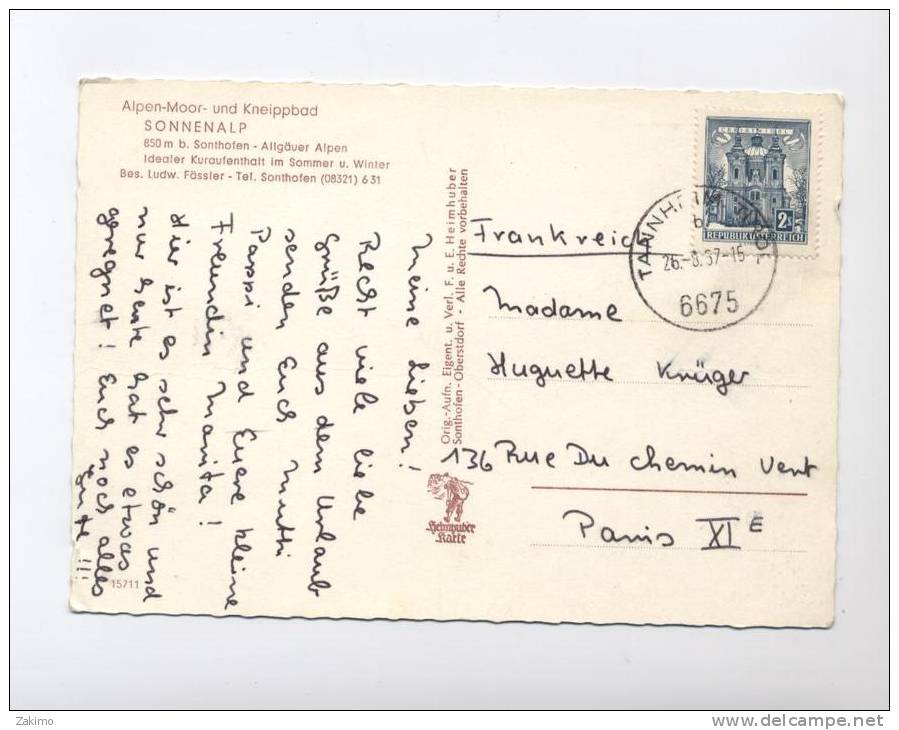 Alpen-Moor- und Kneippbad
SONNENALP
850 m b. Sonthofen - Allgäuer Alpen
Idealer Kuraufenthalt im Sommer u. Winter
Bes. Ludw. Fässler - Tel. Sonthofen (08321) 6 31
Meine Lieben!
Recht viele liebe
Grüße aus dem Urlaub
senden Euch Mutti
Pappi und Euere kleine
Freundin Manita!
Hier ist es sehr schön und
nur heute hat es etwas
geregnet! Euch noch alles
gute!!!
15711
Orig.-Aufn. Eigent. u. Verl. F. u. E. Heimhuber
Sonthofen-Oberstdorf - Alle Rechte vorbehalten
Heimhuber
Karte
CHRISTKINDL
2S
REPUBLIK ÖSTERREICH
TANNHEIM, TIROL
b
26.-8.67-16
6675
Frankreich
Madame
Huguette Krüger
136 Rue Du Chemin Vert
Paris XIE
Zakimo
www.delcampe.net